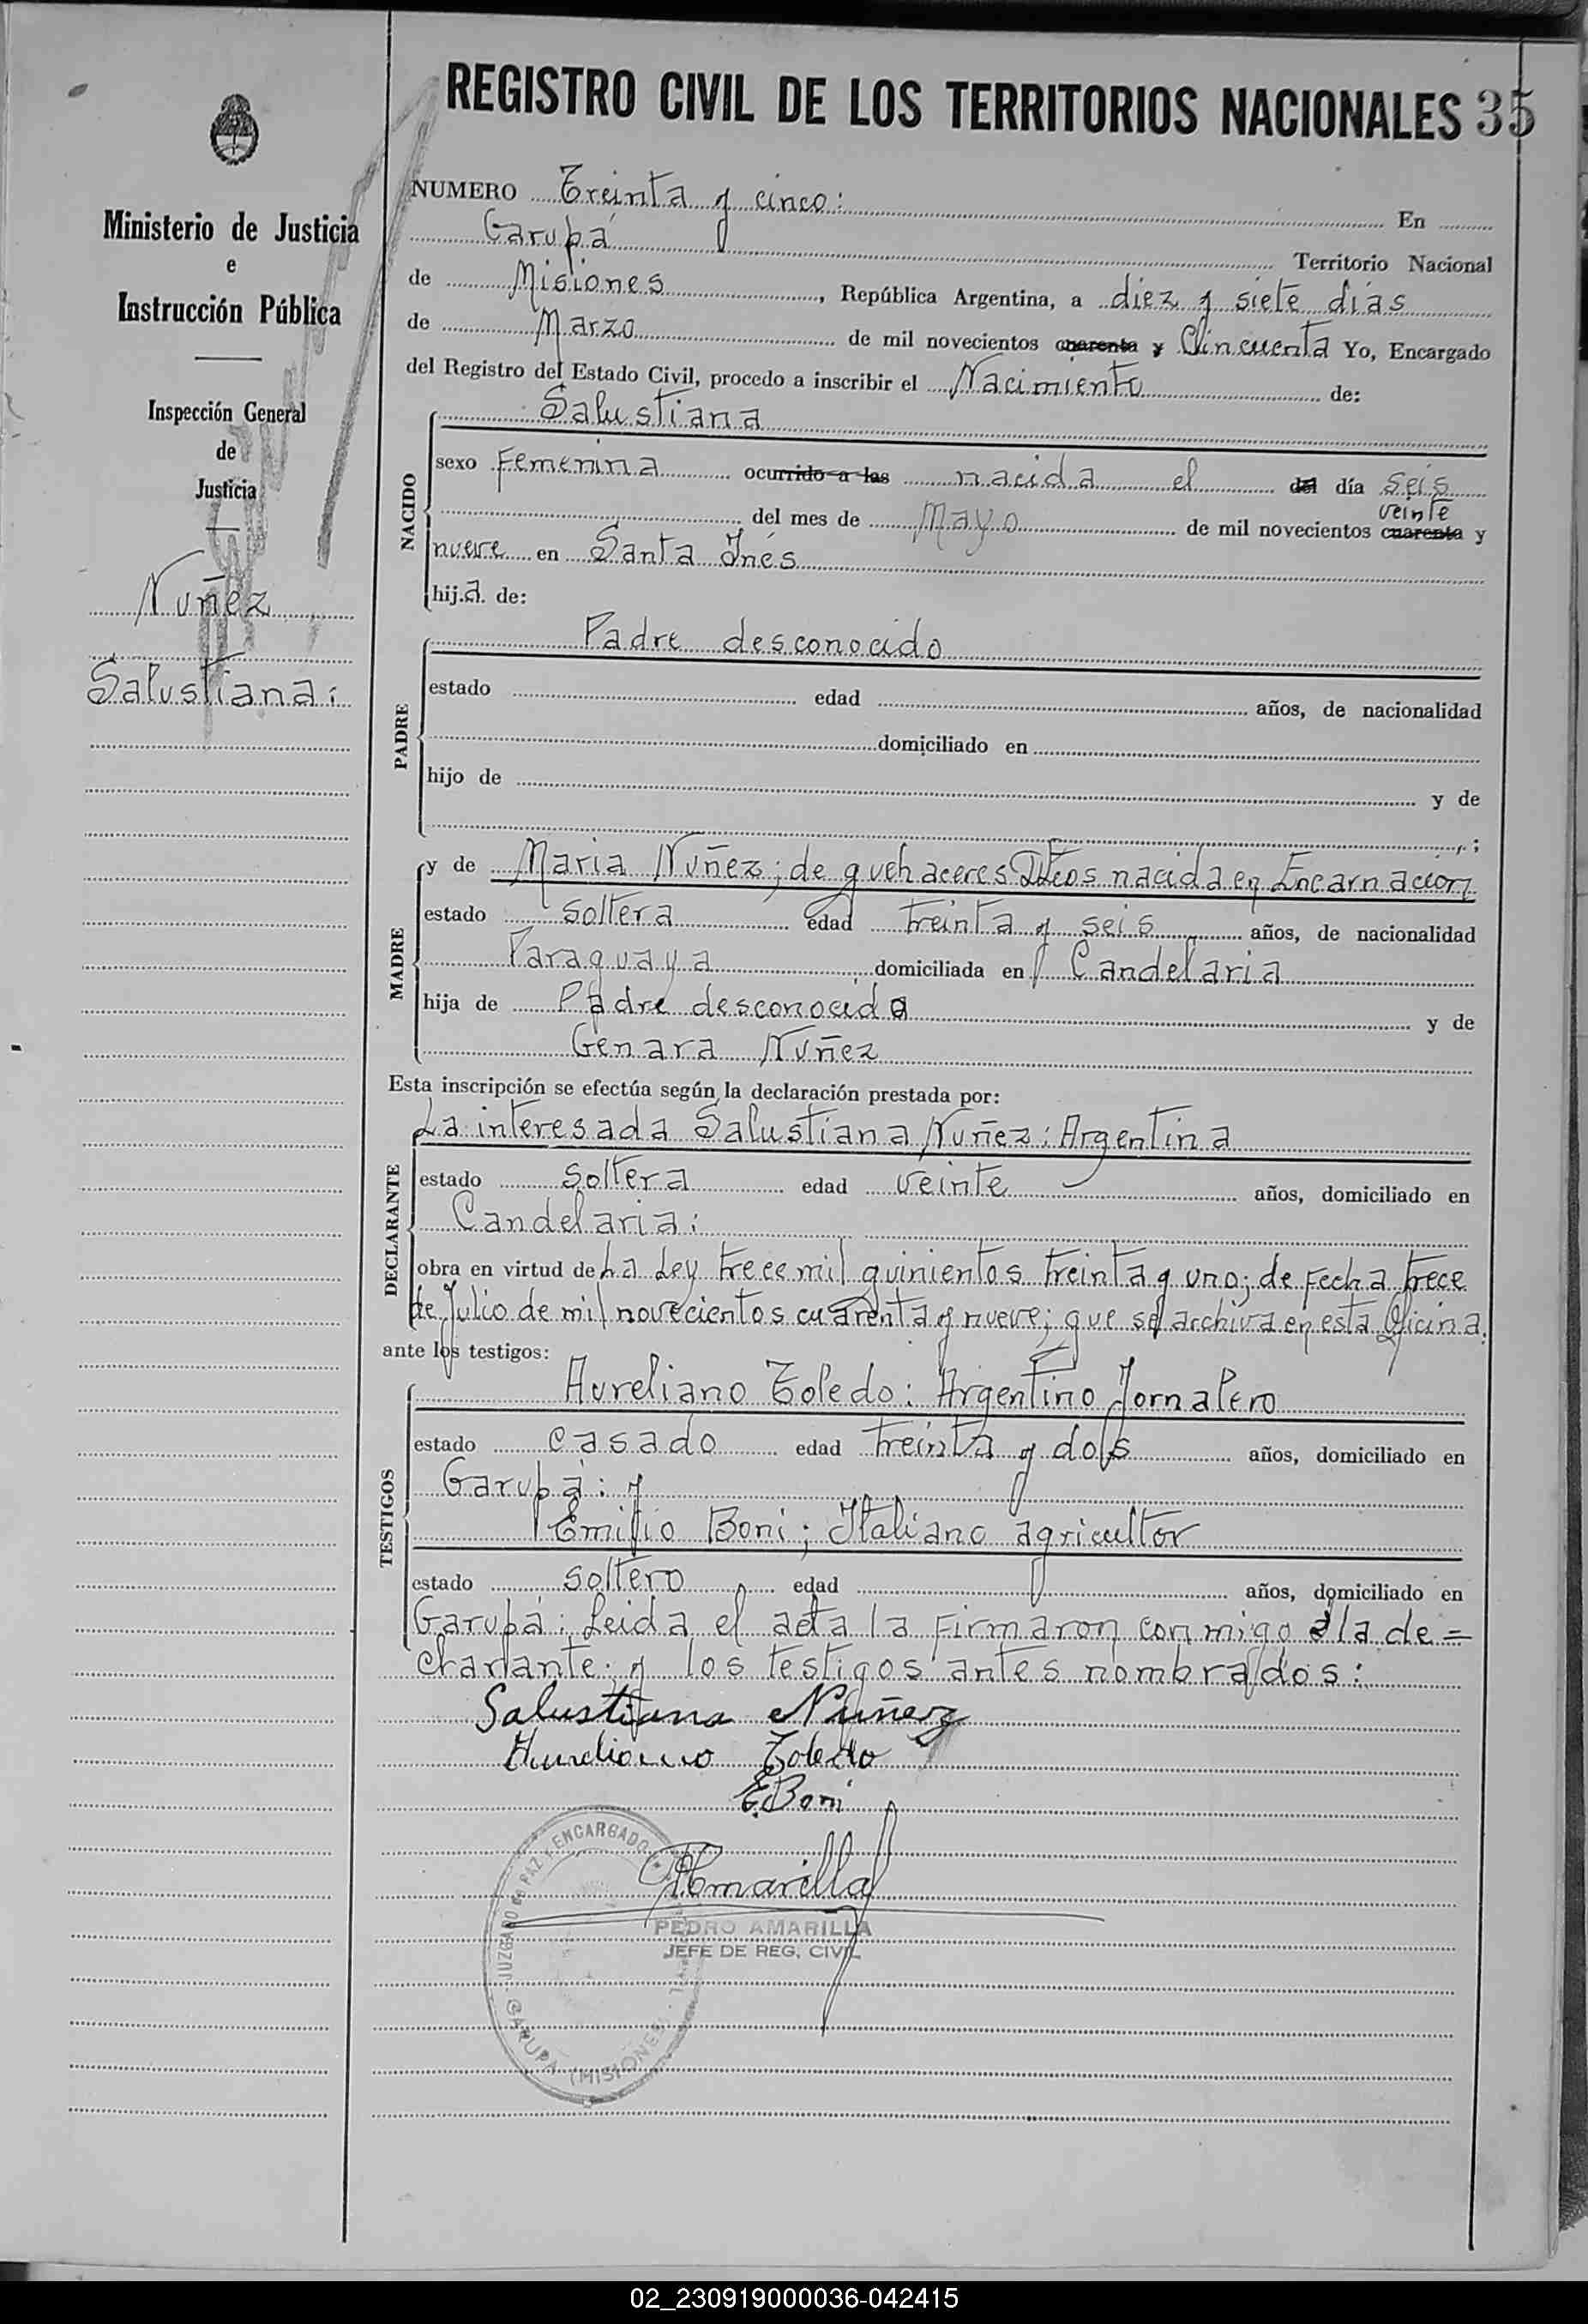 REGISTRO CIVIL DE LOS TERRITORIOS NACIONALES 35
Ministerio de Justicia
e
Instrucción Pública
Inspección General
de
Justicia
Nuñez
Salustiana:
NUMERO Treinta y cinco: En
Garupá Territorio Nacional
de Misiones, República Argentina, a diez y siete días
de Marzo de mil novecientos cuarenta y Cincuenta Yo, Encargado
del Registro del Estado Civil, procedo a inscribir el Nacimiento de:
NACIDO
Salustiana
sexo Femenina ocurrido a las nacida el del día seis
veinte
del mes de Mayo de mil novecientos cuarenta y
nueve en Santa Inés
hija de:
PADRE
Padre desconocido
estado edad años, de nacionalidad
domiciliado en
hijo de y de
;
MADRE
y de Maria Nuñez; de quehaceres nacida en Encarnación
estado soltera edad treinta y seis años, de nacionalidad
Paraguaya domiciliada en Candelaria
hija de Padre desconocido y de
Genara Nuñez
Esta inscripción se efectúa según la declaración prestada por:
DECLARANTE
La interesada Salustiana Nuñez: Argentina
estado soltera edad veinte años, domiciliado en
Candelaria:
obra en virtud de La Ley trece mil quinientos treinta y uno; de Fecha trece
de Julio de mil novecientos cuarenta y nueve; que se archiva en esta Oficina.
ante los testigos:
TESTIGOS
Aureliano Toledo: Argentino Jornalero
estado casado edad treinta y dos años, domiciliado en
Garupá: y
Emilio Boni; Italiano agricultor
estado soltero edad años, domiciliado en
Garupá: Leida el acta la Firmaron conmigo la de=
clarante; y los testigos antes nombrados:
Salustiana Nuñez
Aureliano Toledo
E. Boni
PAmarilla
PEDRO AMARILLA
JEFE DE REG. CIVIL
JUZGADO DE PAZ Y ENCARGADO
GARUPA (MISIONES)
02_230919000036-042415